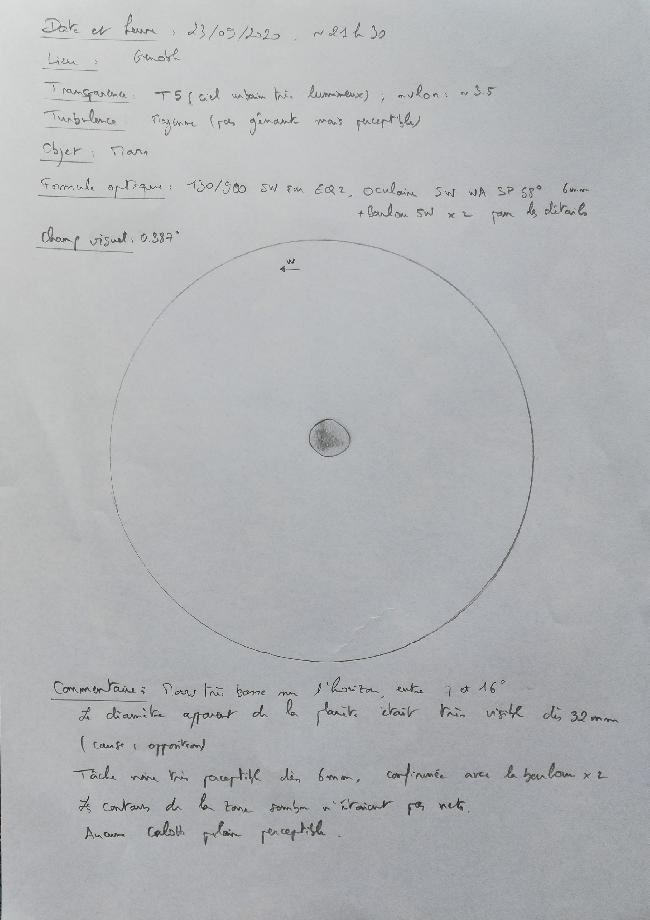 Date et heure : 23/09/2020. ~21h30
Lieu :
Transparence : T5 (ciel urbain très lumineux) ; mvlon : ~3.5
Turbulence : Moyenne (pas gênante mais perceptible)
Objet : Mars
Formule optique : 130/900 SW sur EQ2, Oculaire SW WA SP 58° 6mm
+ barlow SW x2 pour les détails
Champ visuel : 0.387°
W
Commentaire : Mars très basse sur l'horizon, entre 7 et 16°
Le diamètre apparent de la planète était très visible dès 32mm
(cause : opposition)
Tâche noire très perceptible dès 6mm, confirmée avec la barlow x2
Les contours de la zone sombre n'étaient pas nets.
Aucune calotte polaire perceptible.